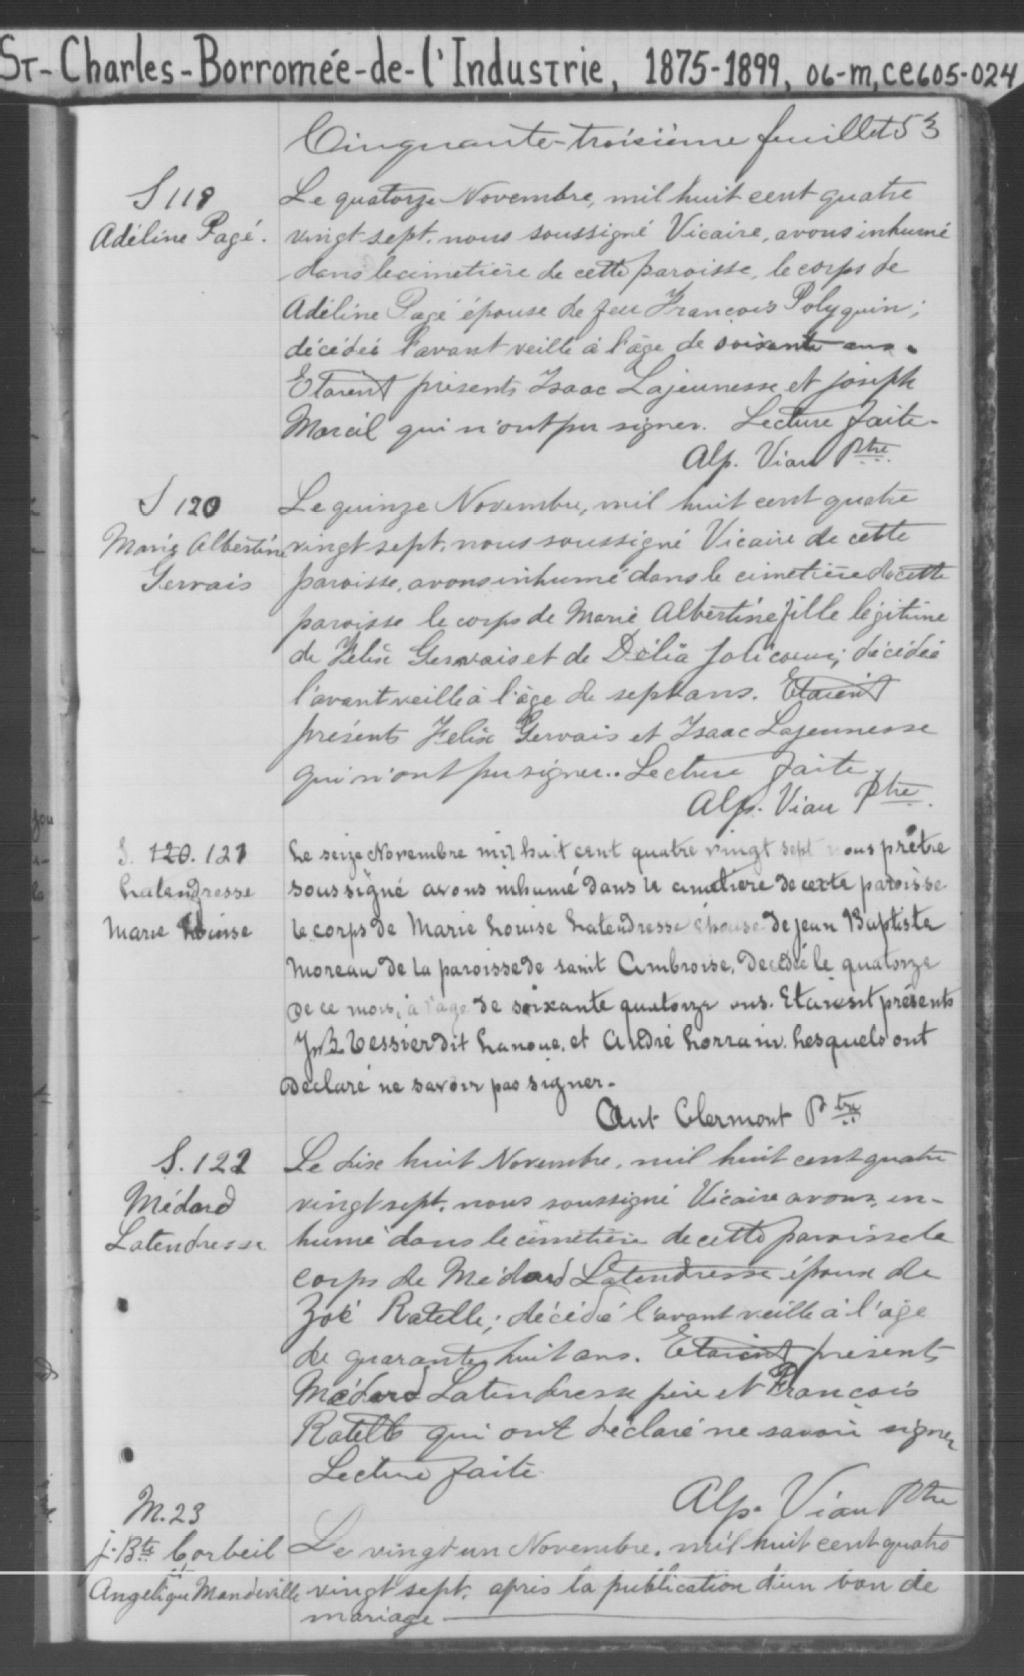 St-Charles-Borromée-de-l'Industrie, 1875-1899, 06-M, CE605-024
Cinquante-troisième feuillet 53
S 119
Adéline Pagé.
Le quatorze Novembre, mil huit cent quatre
vingt-sept, nous soussigné Vicaire, avons inhumé
dans le cimetière de cette paroisse, le corps de
Adéline Pagé épouse de feu François Polyquin;
décédée l'avant veille à l'âge de soixante ans.
Etaient présents Isaac Lajeunesse et Joseph
Marcil qui n'ont pu signer. Lecture faite.
Alp. Viau Ptre
S 120
Marie Albertine
Gervais
Le quinze Novembre, mil huit cent quatre
vingt sept, nous soussigné Vicaire de cette
paroisse, avons inhumé dans le cimetière de cette
paroisse le corps de Marie Albertine fille légitime
de Félix Gervais et de Délia Jolicoeur; décédée
l'avant veille à l'âge de sept ans. Etaient
présents Felix Gervais et Isaac Lajeunesse
qui n'ont pu signer.. Lecture faite.
Alp. Viau Ptre.
S. 120. 121
Latendresse
Marie Louise
Le seize Novembre mil huit cent quatre vingt sept nous prêtre
soussigné avons inhumé dans le cimetiere de cette paroisse
le corps de Marie Louise Latendresse épouse de Jean Baptiste
Moreau de la paroisse de saint Ambroise, decedée le quatorze
de ce mois, à l'age de soixante quatorze ans. Etaient présents
Jn B. Tessier dit Lanoue, et André Lorrain. Lesquels ont
declaré ne savoir pas signer.
Ant Clermont Ptre
S. 122
Médard
Latendresse
Le dix huit Novembre, mil huit cent quatre
vingt sept, nous soussigné Vicaire avons, in-
humé dans le cimetière de cette paroisse le
corps de Médard Latendresse époux de
Zoé Ratelle; décédé l'avant veille à l'âge
de quarante huit ans. Etaient présents
Médard Latendresse père et François
Ratelle qui ont déclaré ne savoir signer
Lecture faite.
Alp. Viau Ptre
M. 23
J. Bte Corbeil
Angélique Mandeville
Le vingt un Novembre, mil huit cent quatre
vingt sept, après la publication d'un ban de
mariage